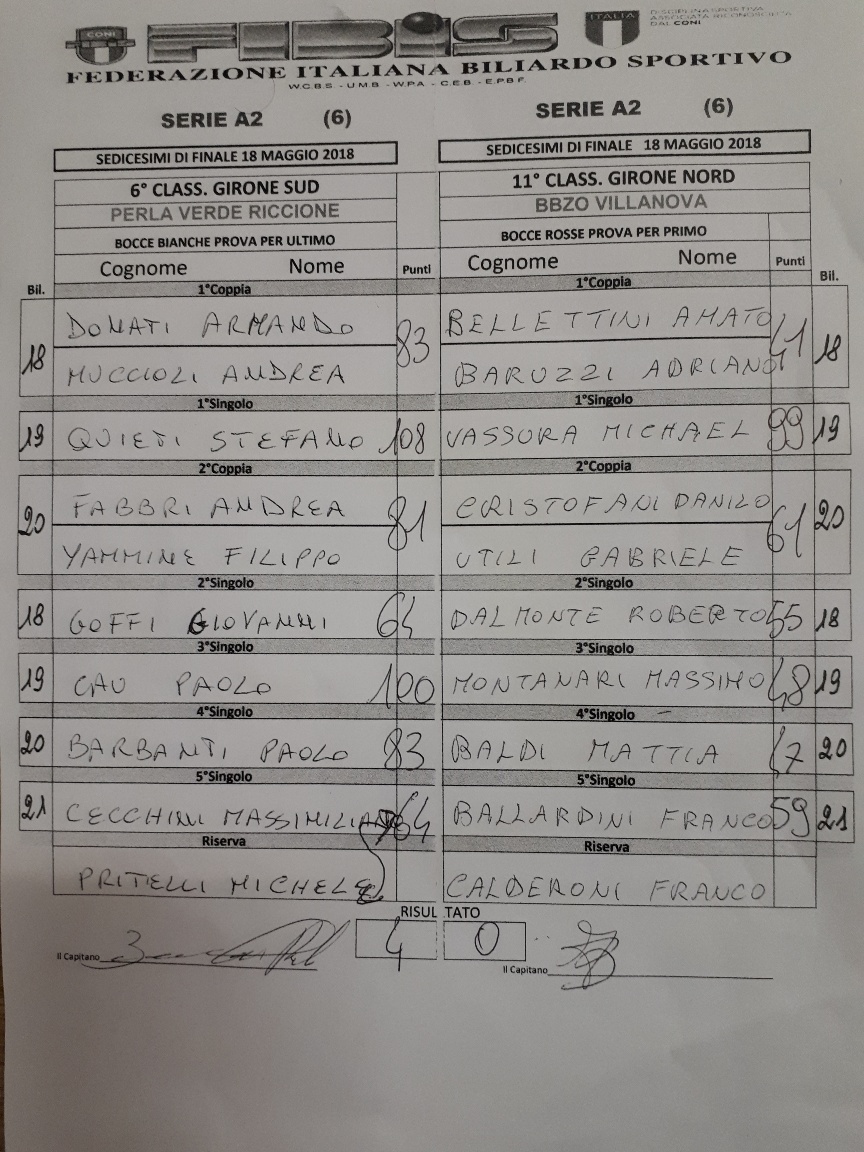 CONI FIBIS ITALIA
DISCIPLINA SPORTIVA
ASSOCIATA RICONOSCIUTA
DAL CONI
FEDERAZIONE ITALIANA BILIARDO SPORTIVO
W.C.B.S - U.M.B - W.P.A - C.E.B - E.P.B.F.
SERIE A2 (6)
SERIE A2 (6)
SEDICESIMI DI FINALE 18 MAGGIO 2018
SEDICESIMI DI FINALE 18 MAGGIO 2018
6° CLASS. GIRONE SUD
11° CLASS. GIRONE NORD
PERLA VERDE RICCIONE
BBZO VILLANOVA
BOCCE BIANCHE PROVA PER ULTIMO
BOCCE ROSSE PROVA PER PRIMO
Cognome Nome Punti
Cognome Nome Punti
Bil. 1°Coppia
1°Coppia Bil.
18 DONATI ARMANDO 83
BELLETTINI AMATO 41 18
MUCCIOLI ANDREA
BARUZZI ADRIANO
1°Singolo
1°Singolo
19 QUIETI STEFANO 108
VASSURA MICHAEL 99 19
2°Coppia
2°Coppia
20 FABBRI ANDREA 81
CRISTOFANI DANILO 61 20
YAMMINE FILIPPO
UTILI GABRIELE
2°Singolo
2°Singolo
18 GOFFI GIOVANNI 64
DALMONTE ROBERTO 55 18
3°Singolo
3°Singolo
19 CAU PAOLO 100
MONTANARI MASSIMO 48 19
4°Singolo
4°Singolo
20 BARBANTI PAOLO 83
BALDI MATTIA 47 20
5°Singolo
5°Singolo
21 CECCHINI MASSIMILIANO 64
BALLARDINI FRANCO 59 21
Riserva
Riserva
PRITELLI MICHELE
CALDERONI FRANCO
RISULTATO
Il Capitano 4 0
Il Capitano